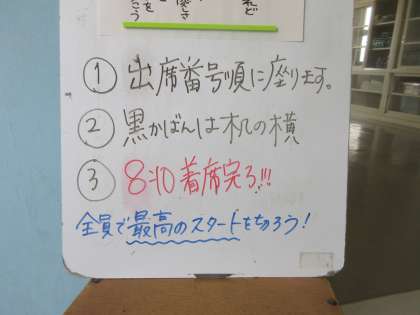 ① 出席番号順に座ります。
② 黒かばんは机の横
③ 8:10 着席完了!!!
全員で最高のスタートをきろう！